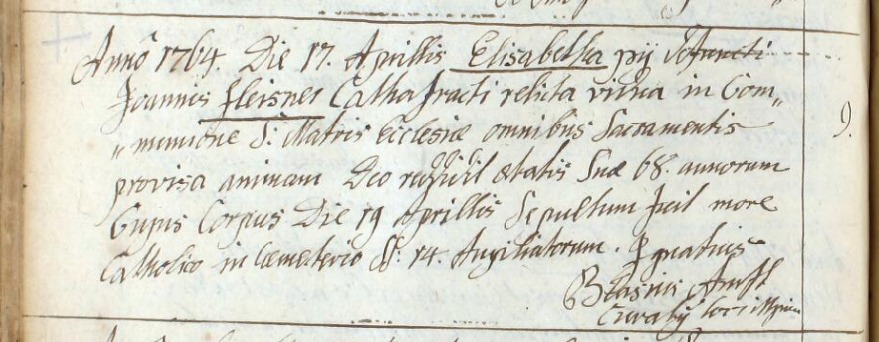 Annô 1764. Die 17. Aprillis Elisabetha pij Defuncti
Joannis Fleisner Cathafracti relicta vidua in Com„
„munione S: Matris Ecclesiæ omnibus Sacramentis
provisa animam Deo reddidit ætatis Suæ 68. annorum
Cujus Corpus Die 19 Aprillis Sepultum fuit more
Catholico in Cæmeterio SS: 14. Auxiliatorum. Ignatius
Blasius
loci
9.